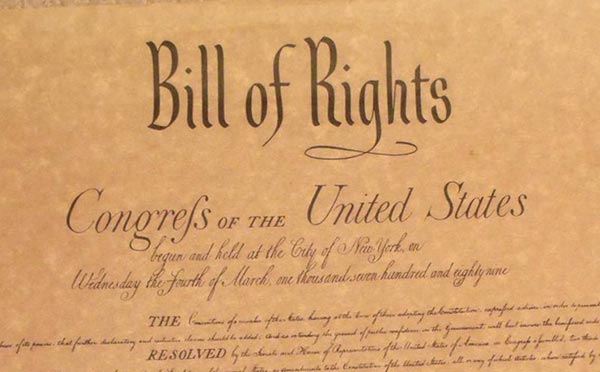 Bill of Rights
Congreſs OF THE United States
begun and held at the City of New York, on
Wednesday the Fourth of March, one thousand seven hundred and eighty nine
THE Conventions of a number of the States having at the time of their adopting the Constitution, expressed a desire, in order to prevent
of its powers, that further declaratory and restrictive clauses should be added: And as extending the ground of public confidence in the Government, will best insure the beneficent ends
RESOLVED by the Senate and House of Representatives of the United States of America in Congreſs aſsembled, two thirds
States, as amendments to the Constitution of the United States, all or any of which Articles, when ratified by